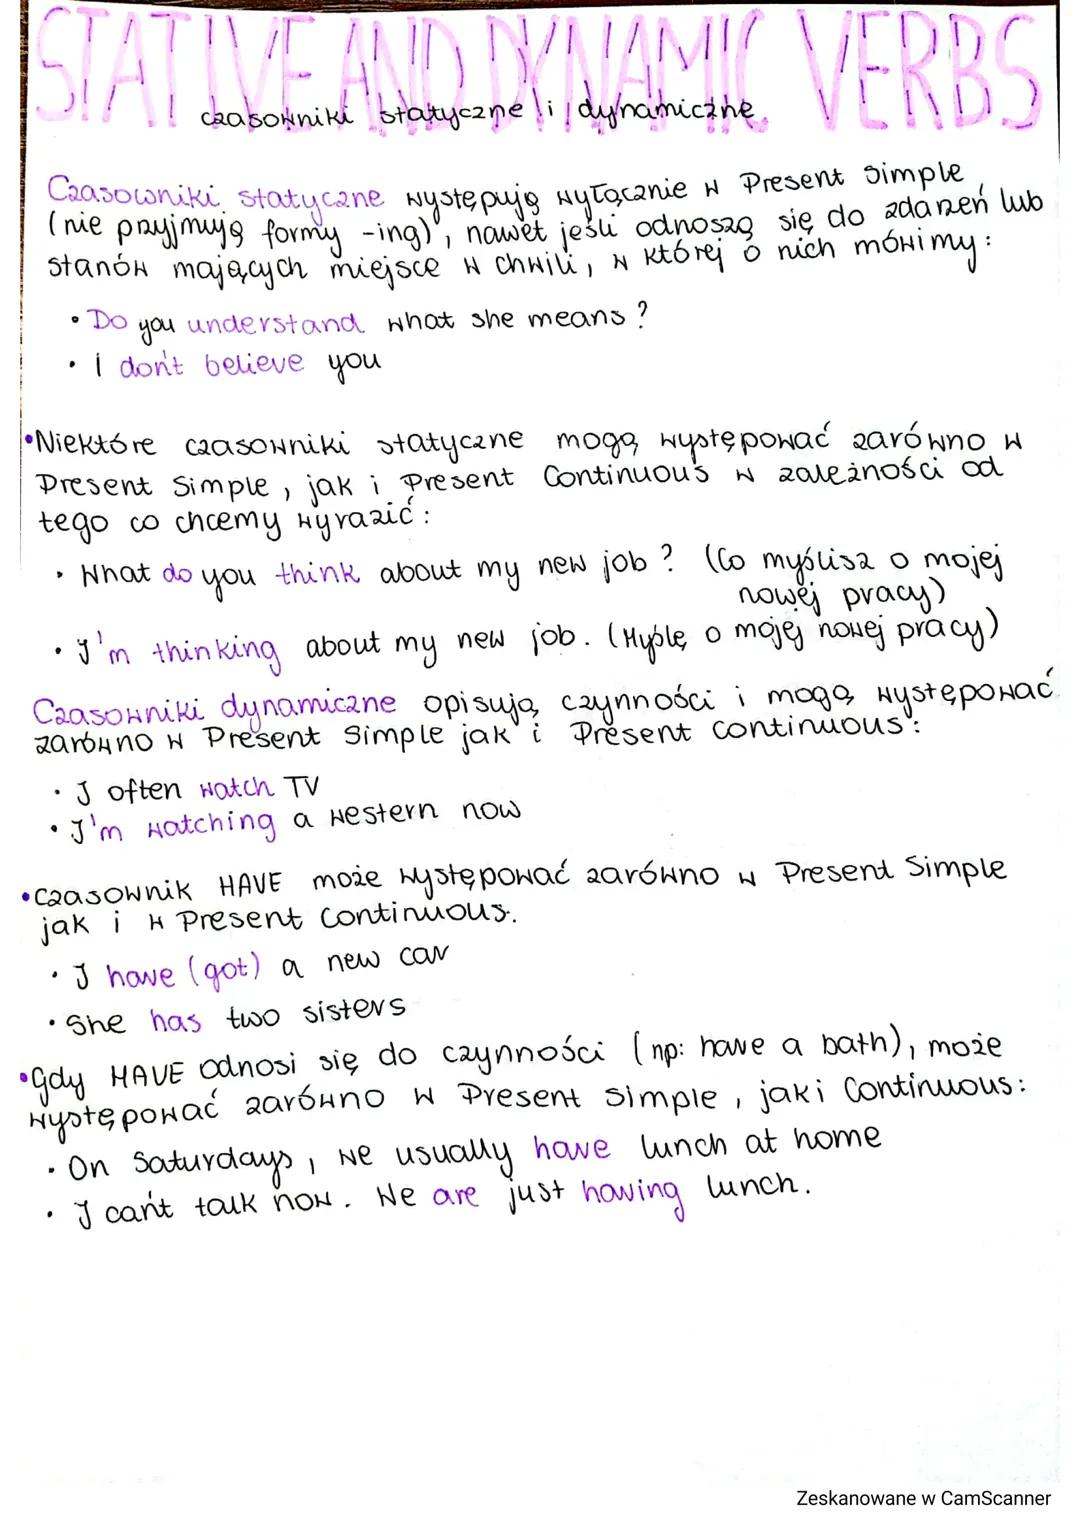 STATIVE AND DYNAMIC VERBS
czasowniki statyczne i dynamiczne
Czasowniki statyczne występują wyłącznie w Present Simple
(nie przyjmują formy -ing), nawet jeśli odnoszą się do zdarzeń lub
stanów mających miejsce w chwili, w której o nich mówimy:
• Do you understand what she means?
• I don't believe you
• Niektóre czasowniki statyczne mogą występować zarówno w
Present Simple, jak i Present Continuous w zależności od
tego co chcemy wyrazić:
• What do you think about my new job? (Co myślisz o mojej
nowej pracy)
• I'm thinking about my new job. (Myślę o mojej nowej pracy)
Czasowniki dynamiczne opisują czynności i mogą występować
zarówno w Present Simple jak i Present continuous:
• I often watch TV
• I'm watching a western now
• czasownik HAVE może występować zarówno w Present Simple
jak i w Present continuous.
• I have (got) a new car
• She has two sisters
• gdy HAVE odnosi się do czynności (np: have a bath), może
występować zarówno w Present simple, jak i Continuous:
• On Saturdays, we usually have lunch at home
• I can't talk now. We are just having lunch.
Zeskanowane w CamScanner